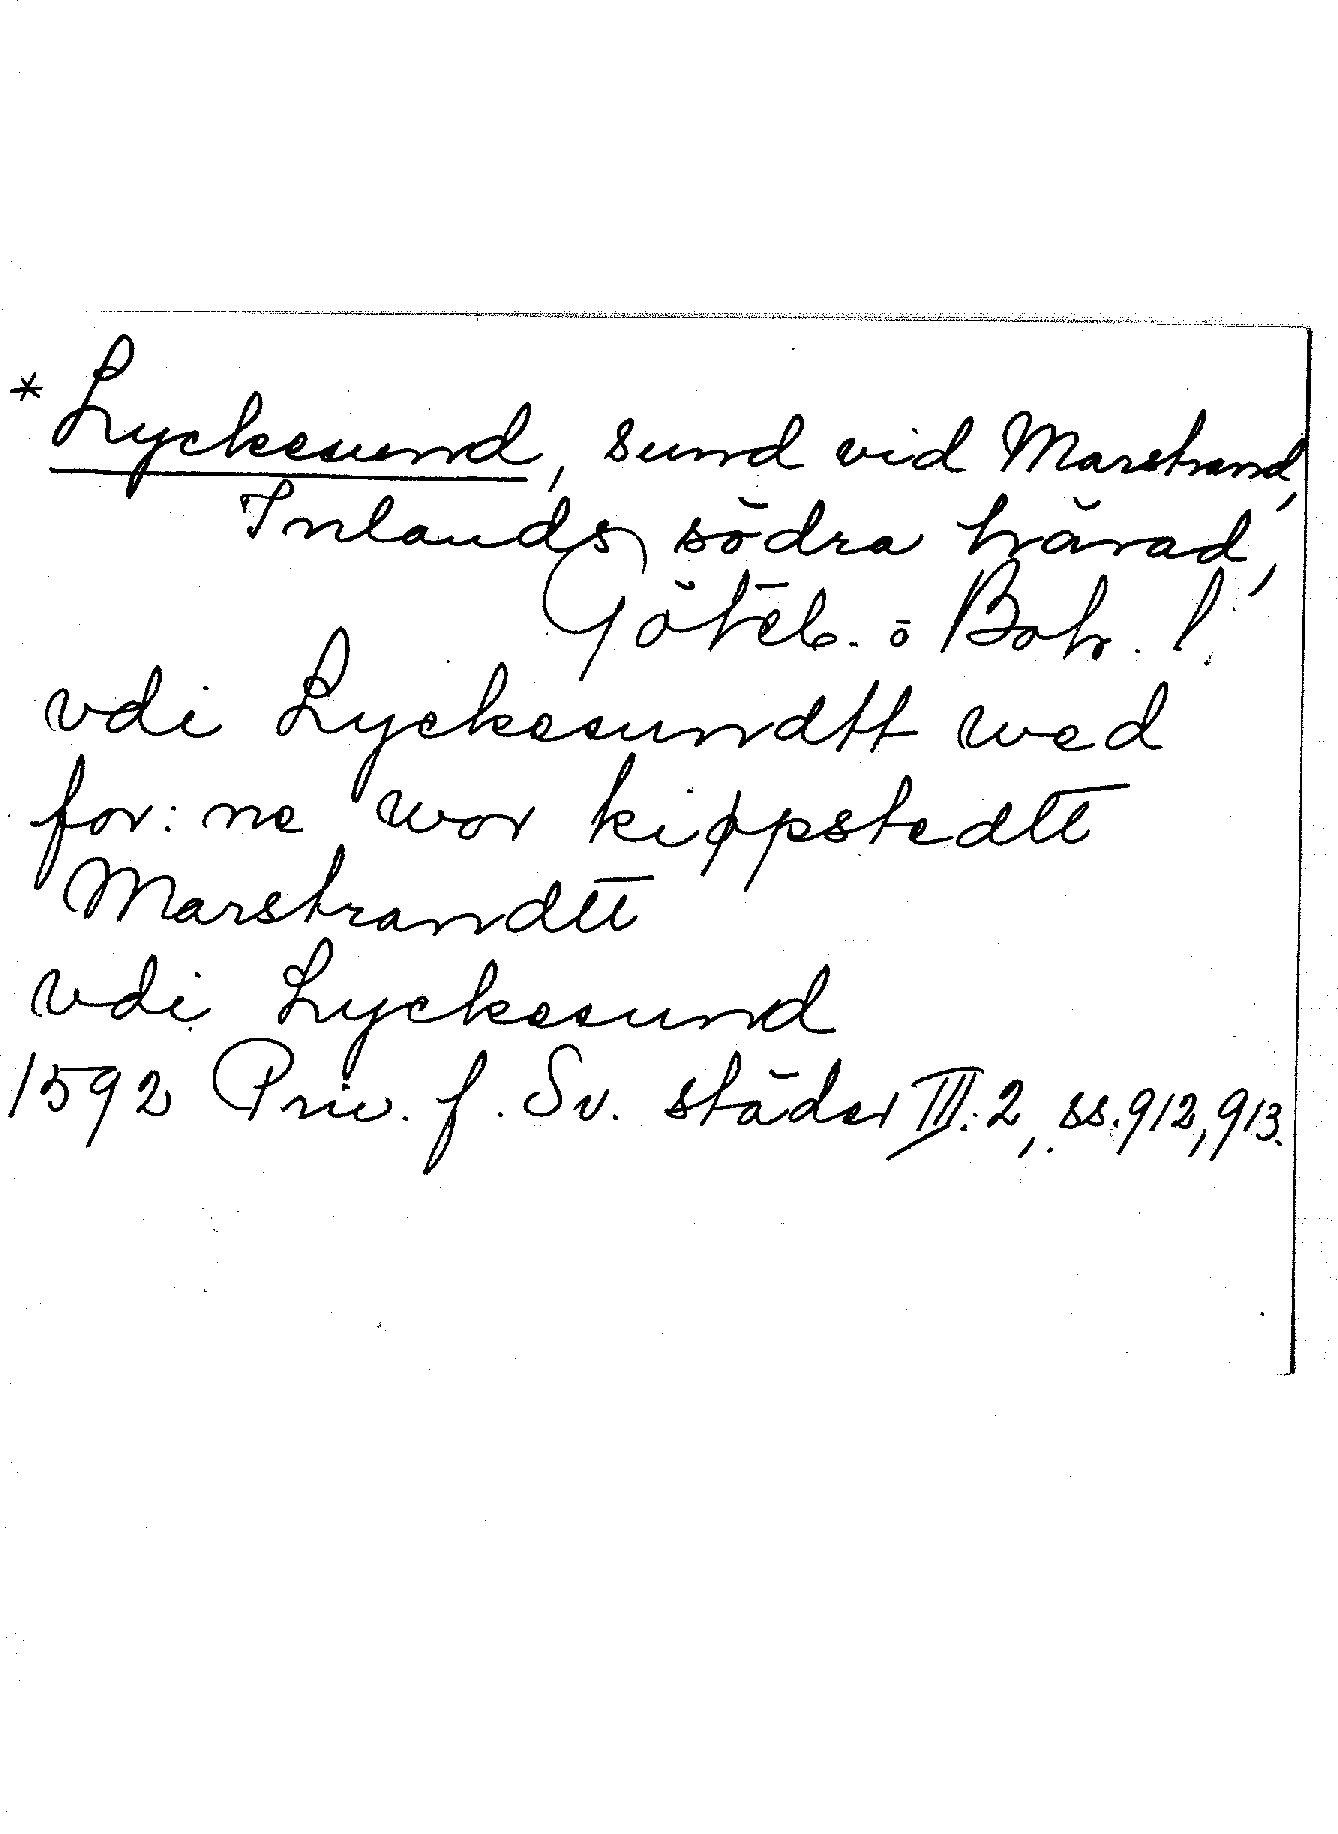 * Lyckesund, sund vid Marstrand,
Inlands södra härad,
Göteb. o Boh. l.
vdi Lyckesundtt wed
for: ne wor kiøpstedtt
Marstrandtt
vdi Lyckesund
1592 Priv. f. Sv. städer III:2, ss. 912, 913.